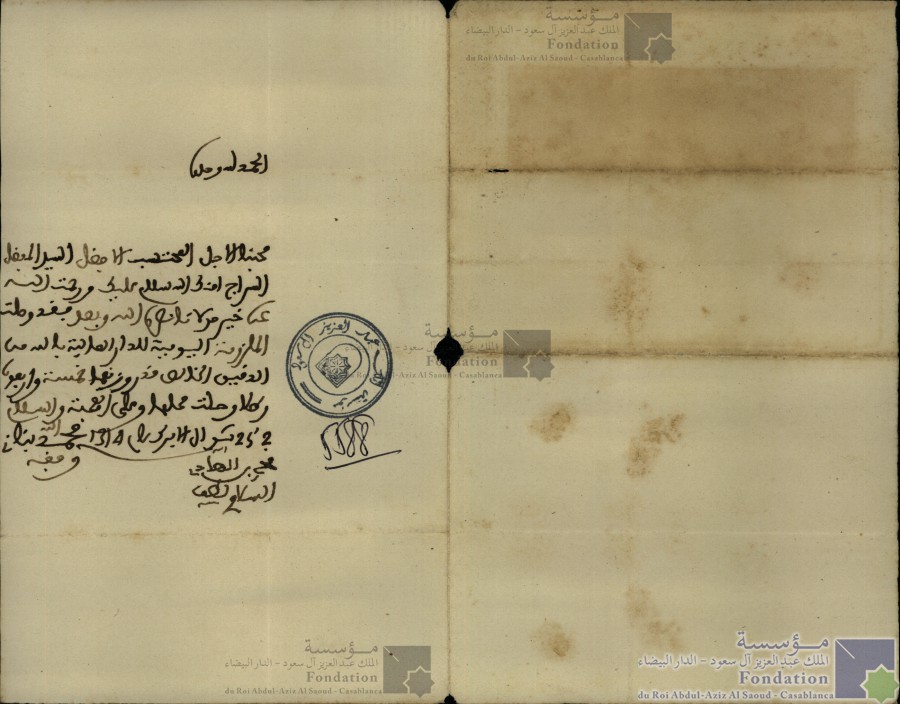 الحمد لله وحده
محبنا الاجل المحتسب الافضل السيد المفضل
السراج امنك الله سلام عليك ورحمت الله
عن خير مولانا نصره الله وبعد فقد وصلت
اليومية للدار العالية بالله من
الدقيق قدر وزنها خمسة واربعون
رطلا وحلت محلها وعلى المحبة والسلام
في 25 شوال الابرك عام 1314 محمد بنان
وفقه الله
مؤسسة الملك عبد العزيز آل سعود
5588
مؤسسة
الملك عبد العزيز آل سعود - الدار البيضاء
Fondation
du Roi Abdul-Aziz Al Saoud - Casablanca
مؤسسة
الملك عبد العزيز آل سعود - الدار البيضاء
Fondation
du Roi Abdul-Aziz Al Saoud - Casablanca
مؤسسة
الملك عبد العزيز آل سعود - الدار البيضاء
Fondation
du Roi Abdul-Aziz Al Saoud - Casablanca
مؤسسة
الملك عبد العزيز آل سعود - الدار البيضاء
Fondation
du Roi Abdul-Aziz Al Saoud - Casablanca